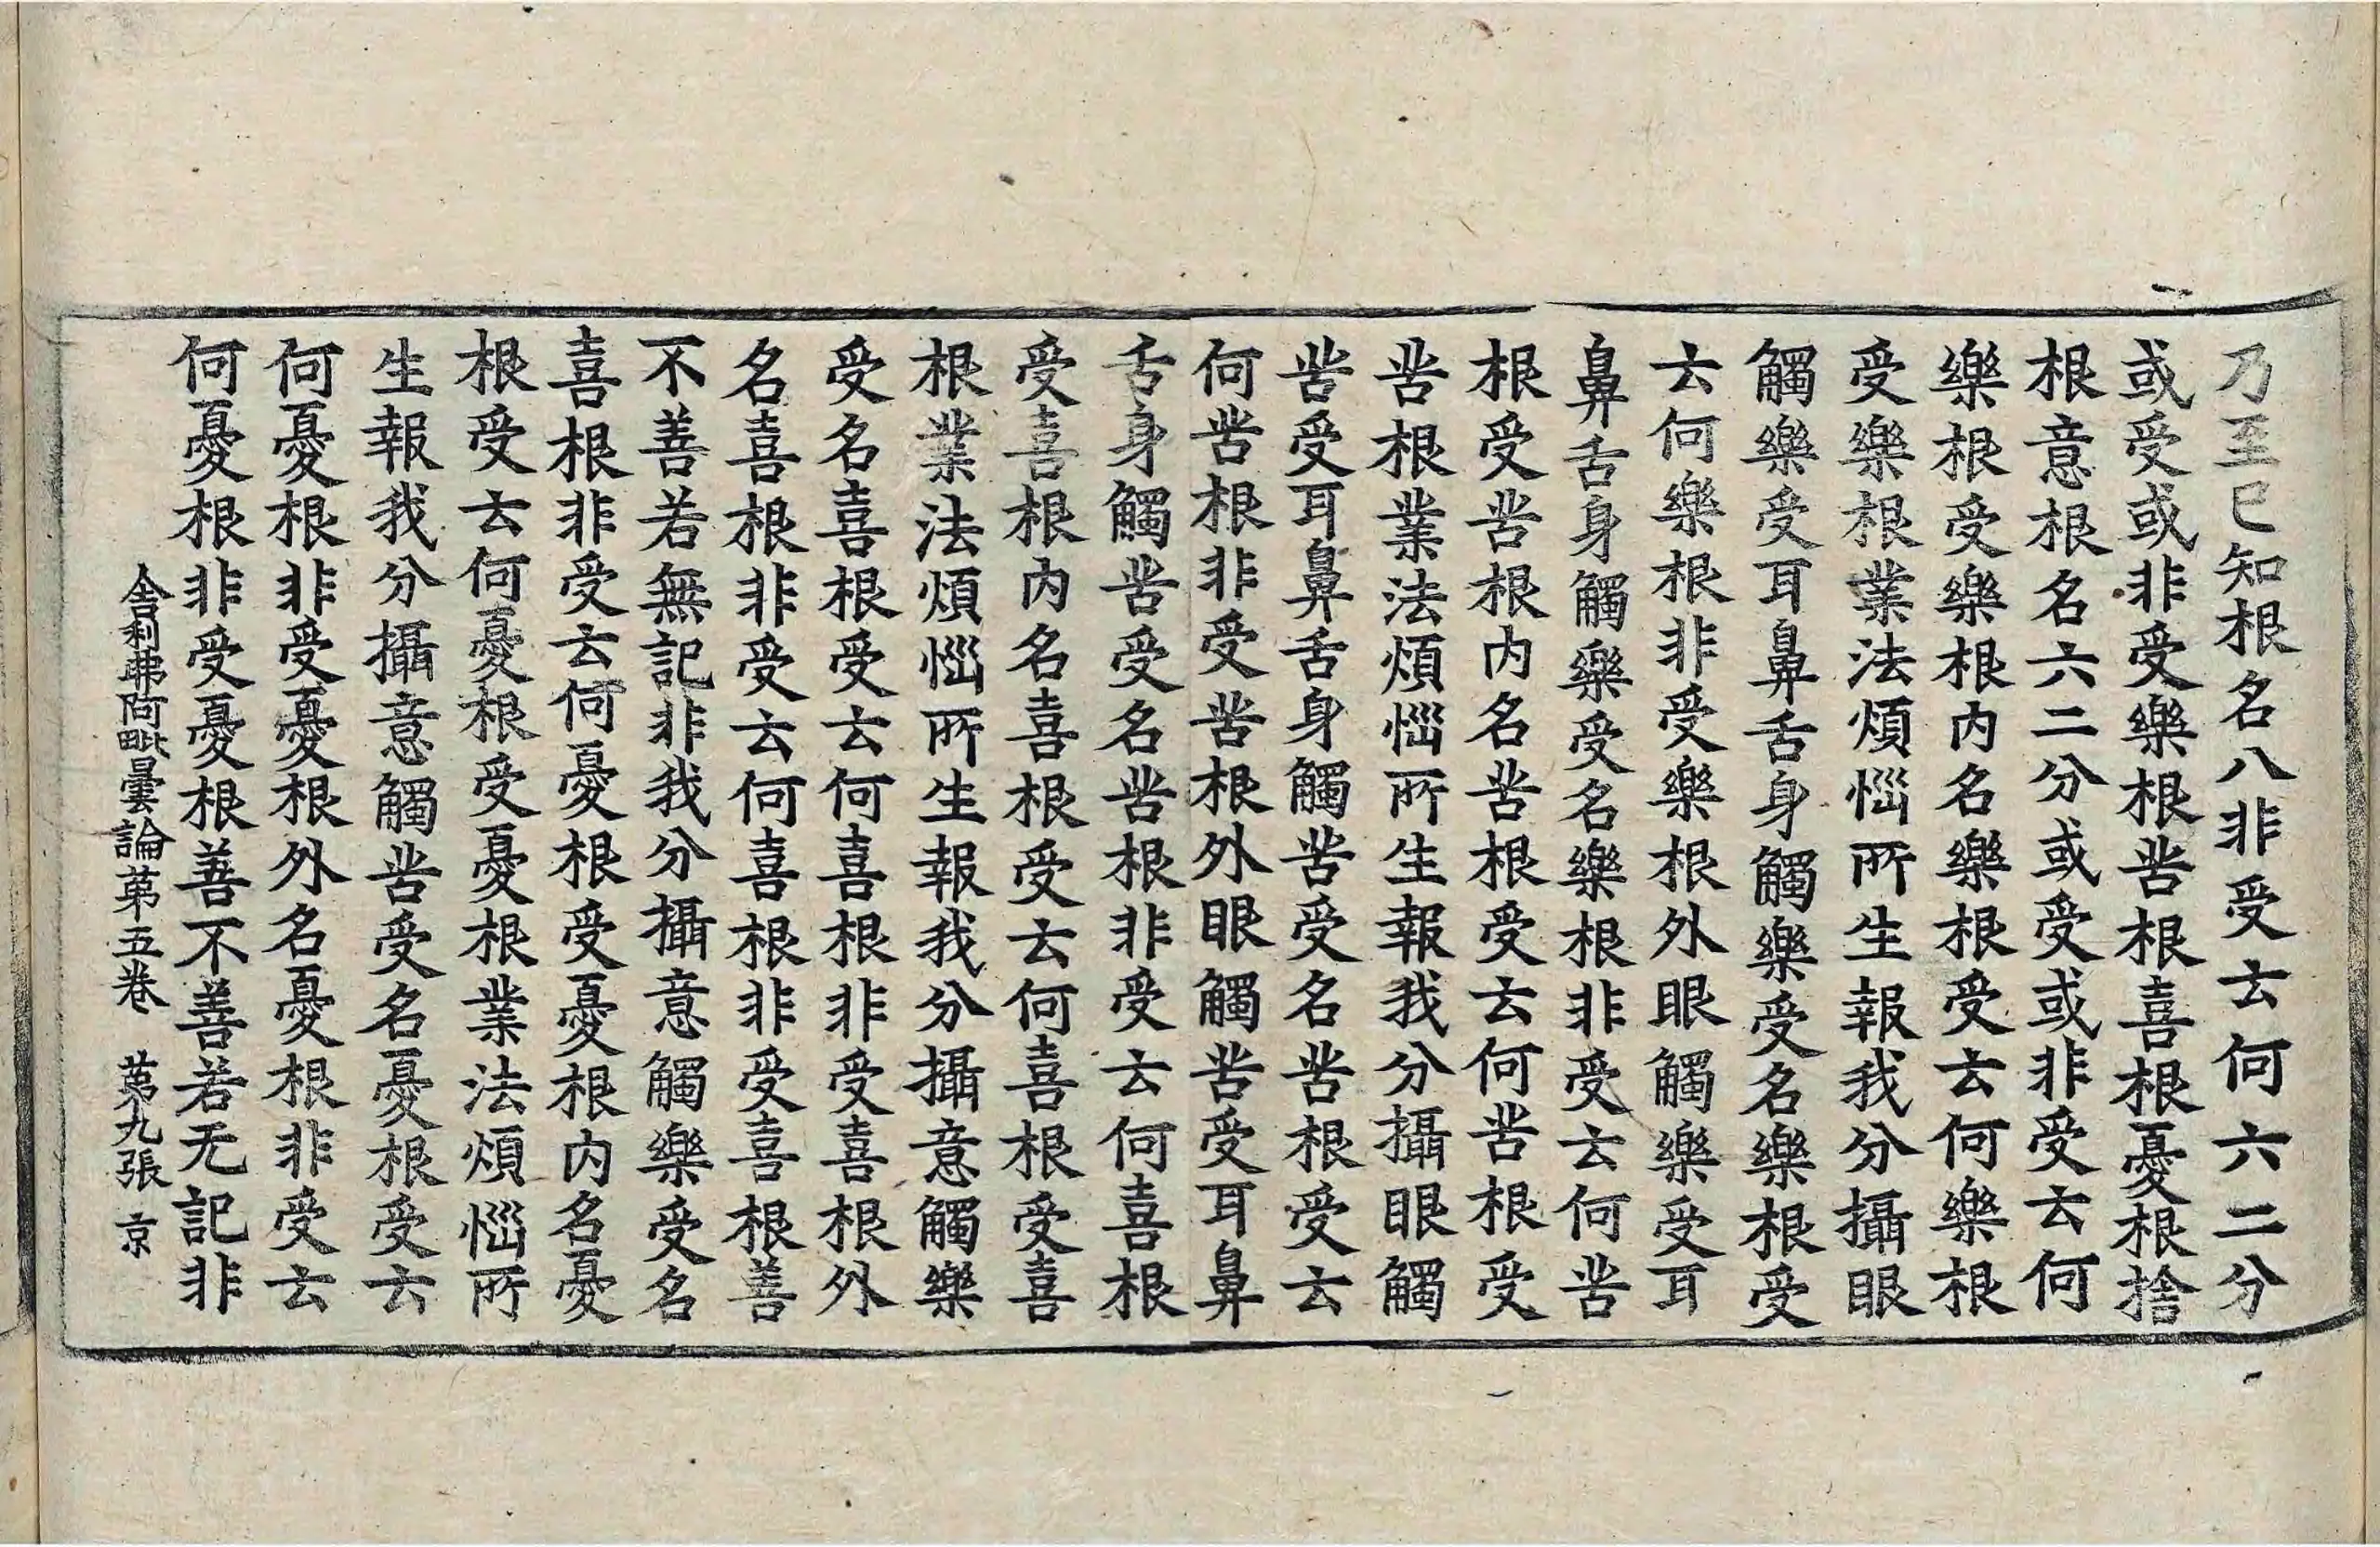 乃至已知根名八非受云何六二分
或受或非受樂根苦根喜根憂根捨
根意根名六二分或受或非受云何
樂根受樂根内名樂根受云何樂根
受樂根業法煩惱所生報我分攝眼
觸樂受耳鼻舌身觸樂受名樂根受
云何樂根非受樂根外眼觸樂受耳
鼻舌身觸樂受名樂根非受云何苦
根受苦根内名苦根受云何苦根受
苦根業法煩惱所生報我分攝眼觸
苦受耳鼻舌身觸苦受名苦根受云
何苦根非受苦根外眼觸苦受耳鼻
舌身觸苦受名苦根非受云何喜根
受喜根内名喜根受云何喜根受喜
根業法煩惱所生報我分攝意觸樂
受名喜根受云何喜根非受喜根外
名喜根非受云何喜根非受喜根善
不善若無記非我分攝意觸樂受名
喜根非受云何憂根受憂根内名憂
根受云何憂根受憂根業法煩惱所
生報我分攝意觸苦受名憂根受云
何憂根非受憂根外名憂根非受云
何憂根非受憂根善不善若无記非
舍利弗阿毗曇論第五卷 第九張 京